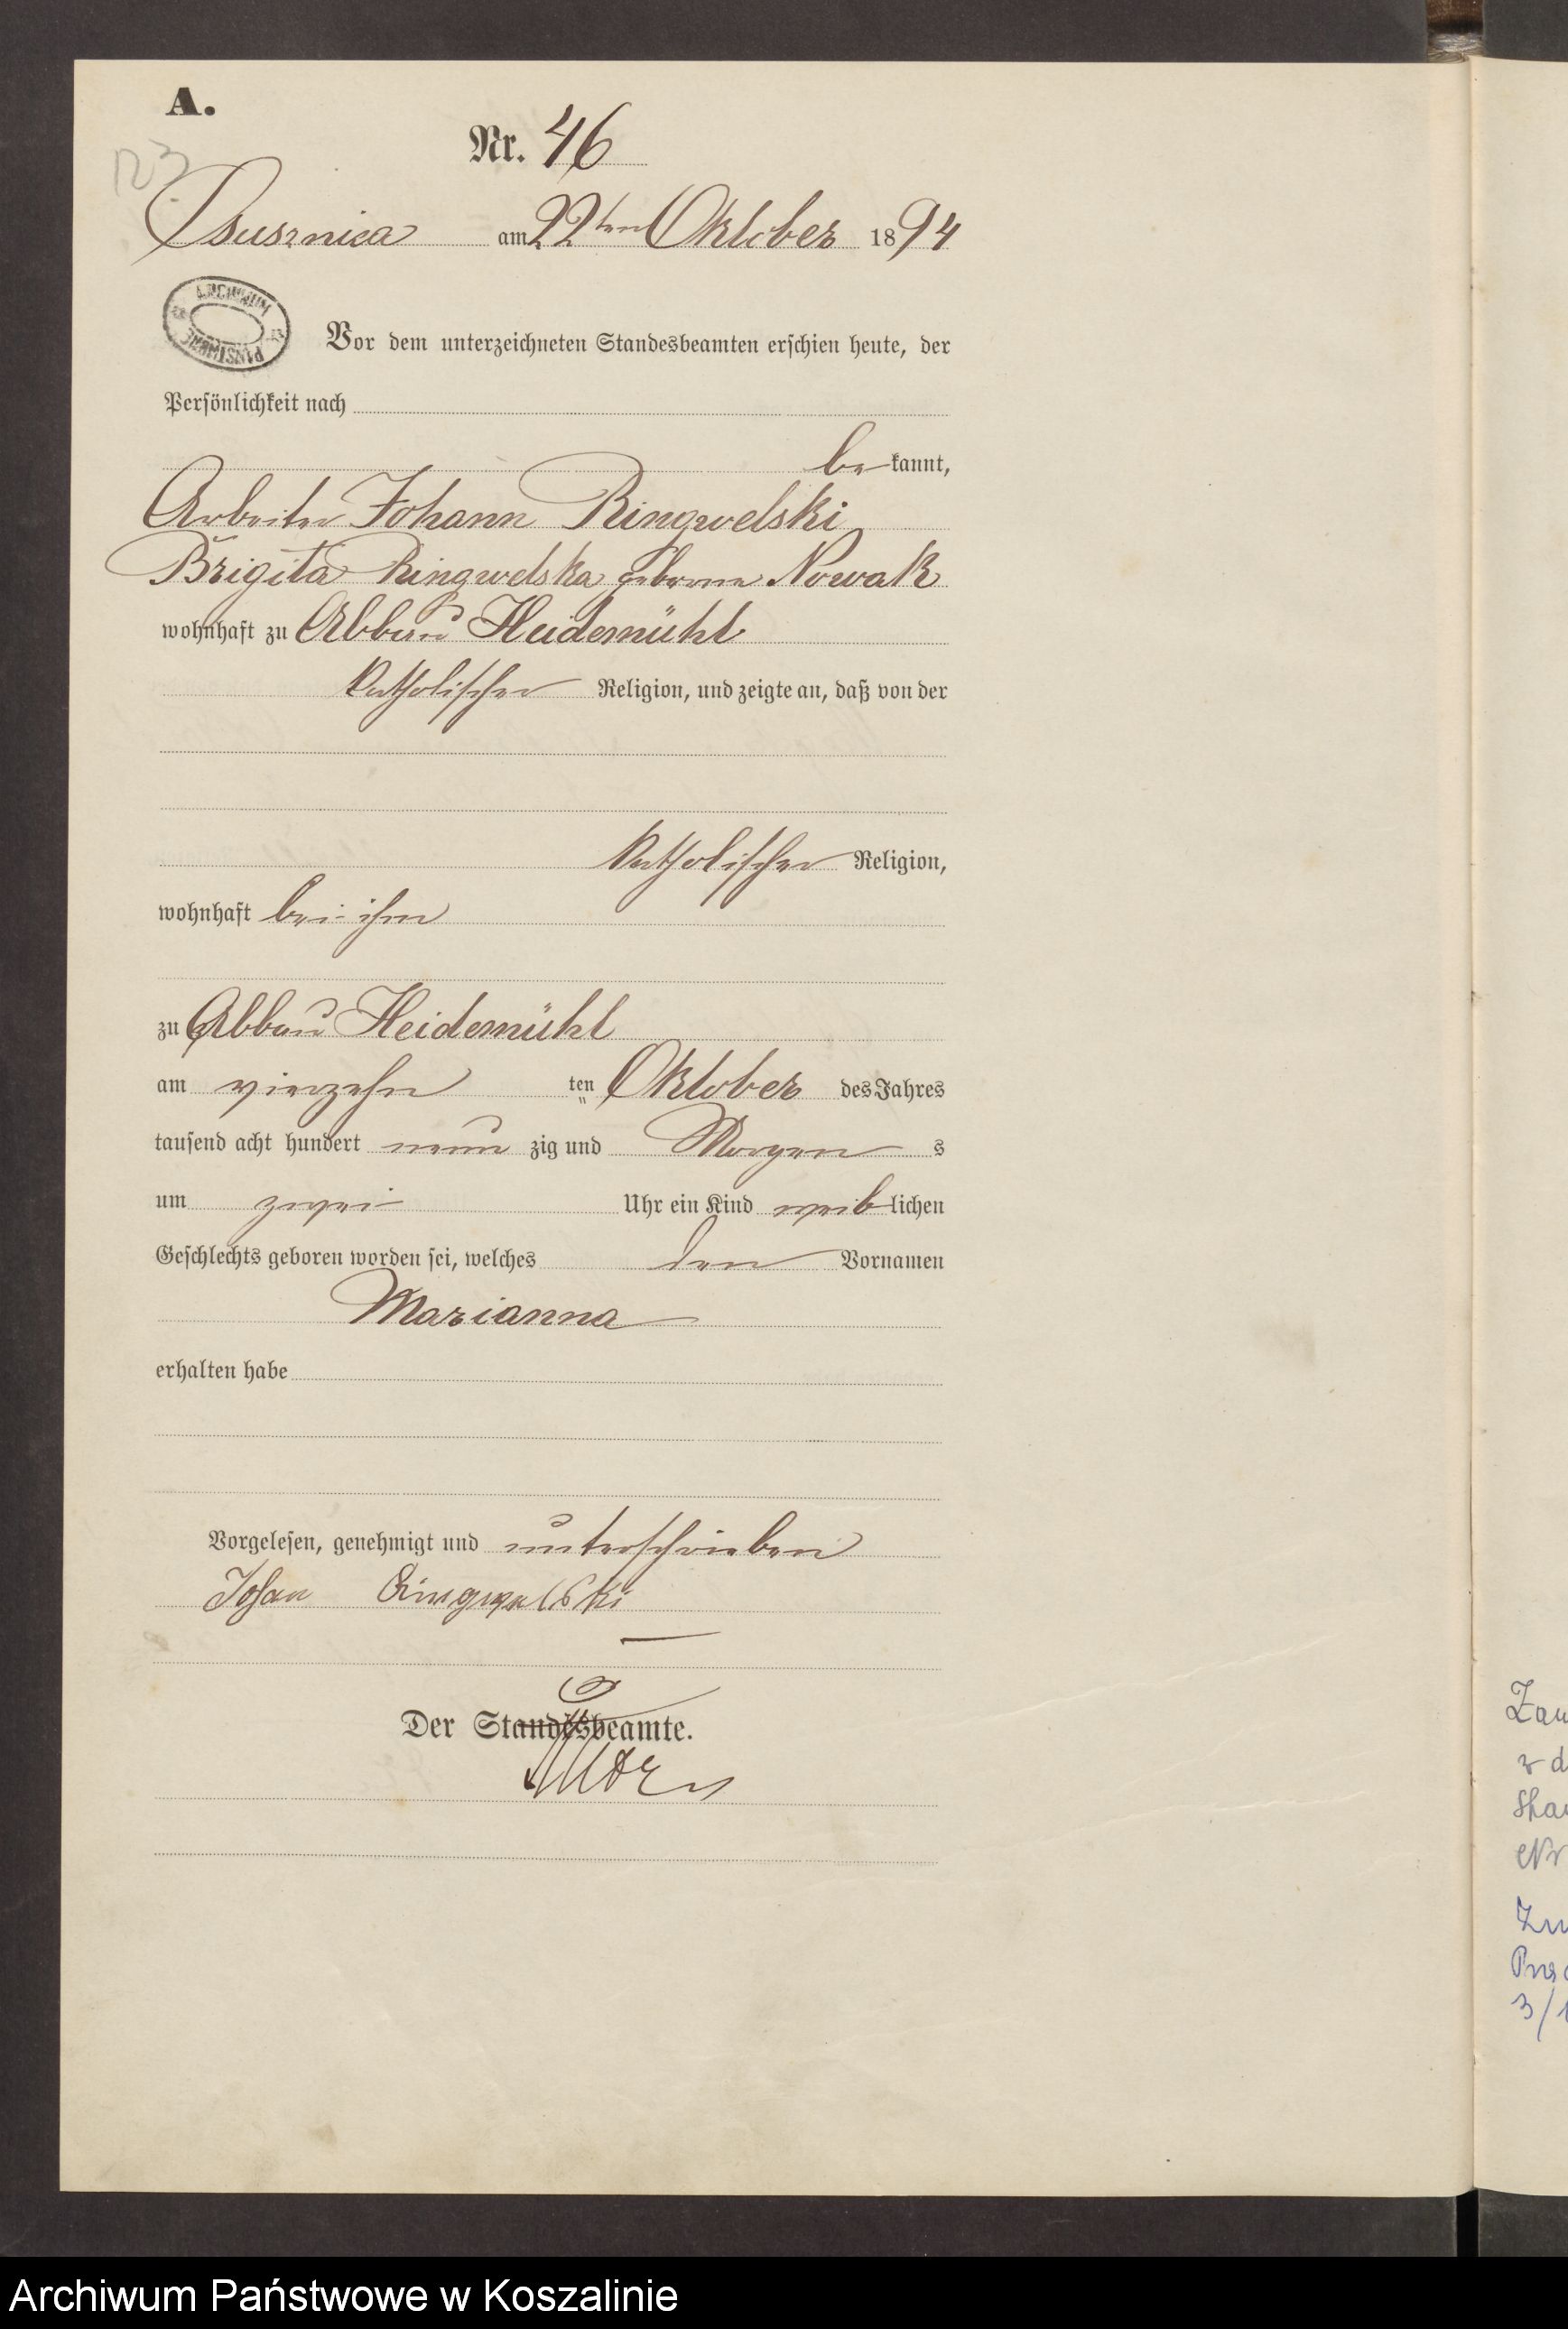 A.
Nr. 46
123
am 22ten Oktober 1894
ARCHIWUM PAŃSTWOWE
Vor dem unterzeichneten Standesbeamten erschien heute, der
Persönlichkeit nach
bekannt,
Arbeiter Johann Ringwelski
Brigita Ringwelska geborene Nowak
wohnhaft zu Abbau Heidemühl
katholischer Religion, und zeigte an, daß von der
katholischer Religion,
wohnhaft bei ihm
zu Abbau Heidemühl
am vierzehn ten Oktober des Jahres
tausend acht hundert neun zig und Morgen s
um zwei Uhr ein Kind weiblichen
Geschlechts geboren worden sei, welches den Vornamen
Marianna
erhalten habe
Vorgelesen, genehmigt und unterschrieben
Johan Ringwelski
Der Standesbeamte.
Zau
Nr
3/1
Archiwum Państwowe w Koszalinie